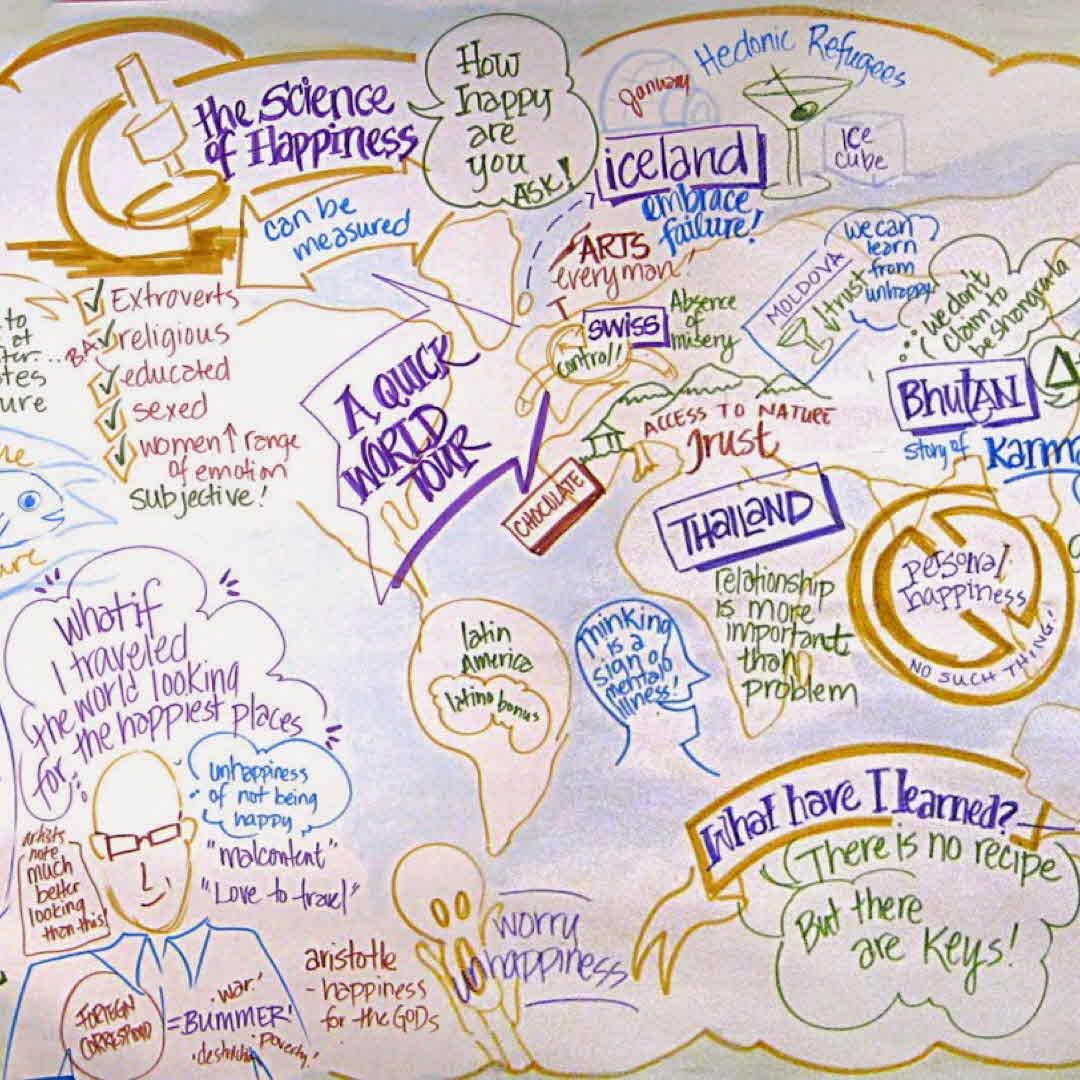 the Science
of Happiness
How
happy
are
you
ASK!
can be
measured
Extroverts
religious
educated
sexed
women ↑ range
of emotion
subjective!
to
at
ure
What if
I traveled
the world looking
for the happiest places
unhappiness
of not being
happy
"malcontent"
"Love to travel"
artists
note
much
better
looking
than this!
FOREIGN
CORRESPOND
war!
=BUMMER!
Poverty!
aristotle
- happiness
for the GODs
worry
unhappiness
A QUICK
WORLD
TOUR
Hedonic Refugees
January
iceland
ICE
CUBE
embrace
failure!
ARTS
everyman!
SWISS
Absence
of
misery
control!
ACCESS TO NATURE
Trust
CHOCOLATE
MOLDOVA
trust
we can
learn
from
unhappy
we don't
claim to
be shangrada
BhutAN
story of Karma
THAILAND
relationship
is more
important
than
problem
Personal
happiness
NO SUCH THING!
latin
America
latino bonus
Thinking
is a
sign of
mental
illness!
What have I learned?
(There is no recipe)
But there
are Keys!